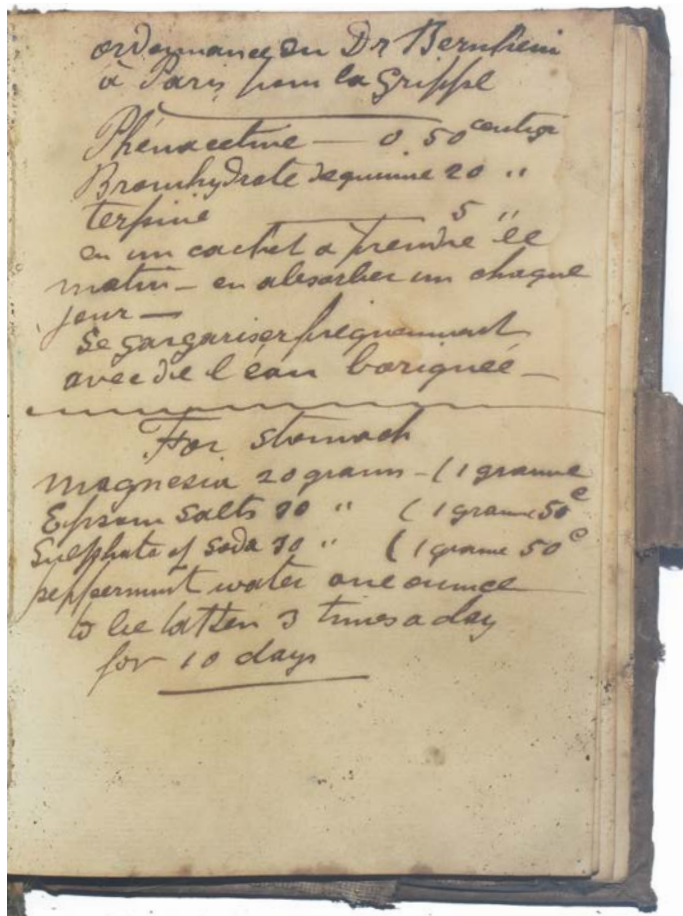 ordonnance du Dr Bernheim
à Paris pour la Grippe
Phénacetine — 0.50 centigr
Bromhydrate de quinine 20 "
terpine 5 "
en un cachet à prendre le
matin — en absorber un chaque
jour —
Se gargariser fréquemment
avec de l'éau boriquée —
For stomach
magnesia 20 grains — ( 1 gramme
Epsom Salts 30 " ( 1 gramme 50 c
Sulphate of Soda 30 " ( 1 gramme 50 c
peppermint water one ounce
to be taken 3 times a day
for 10 days